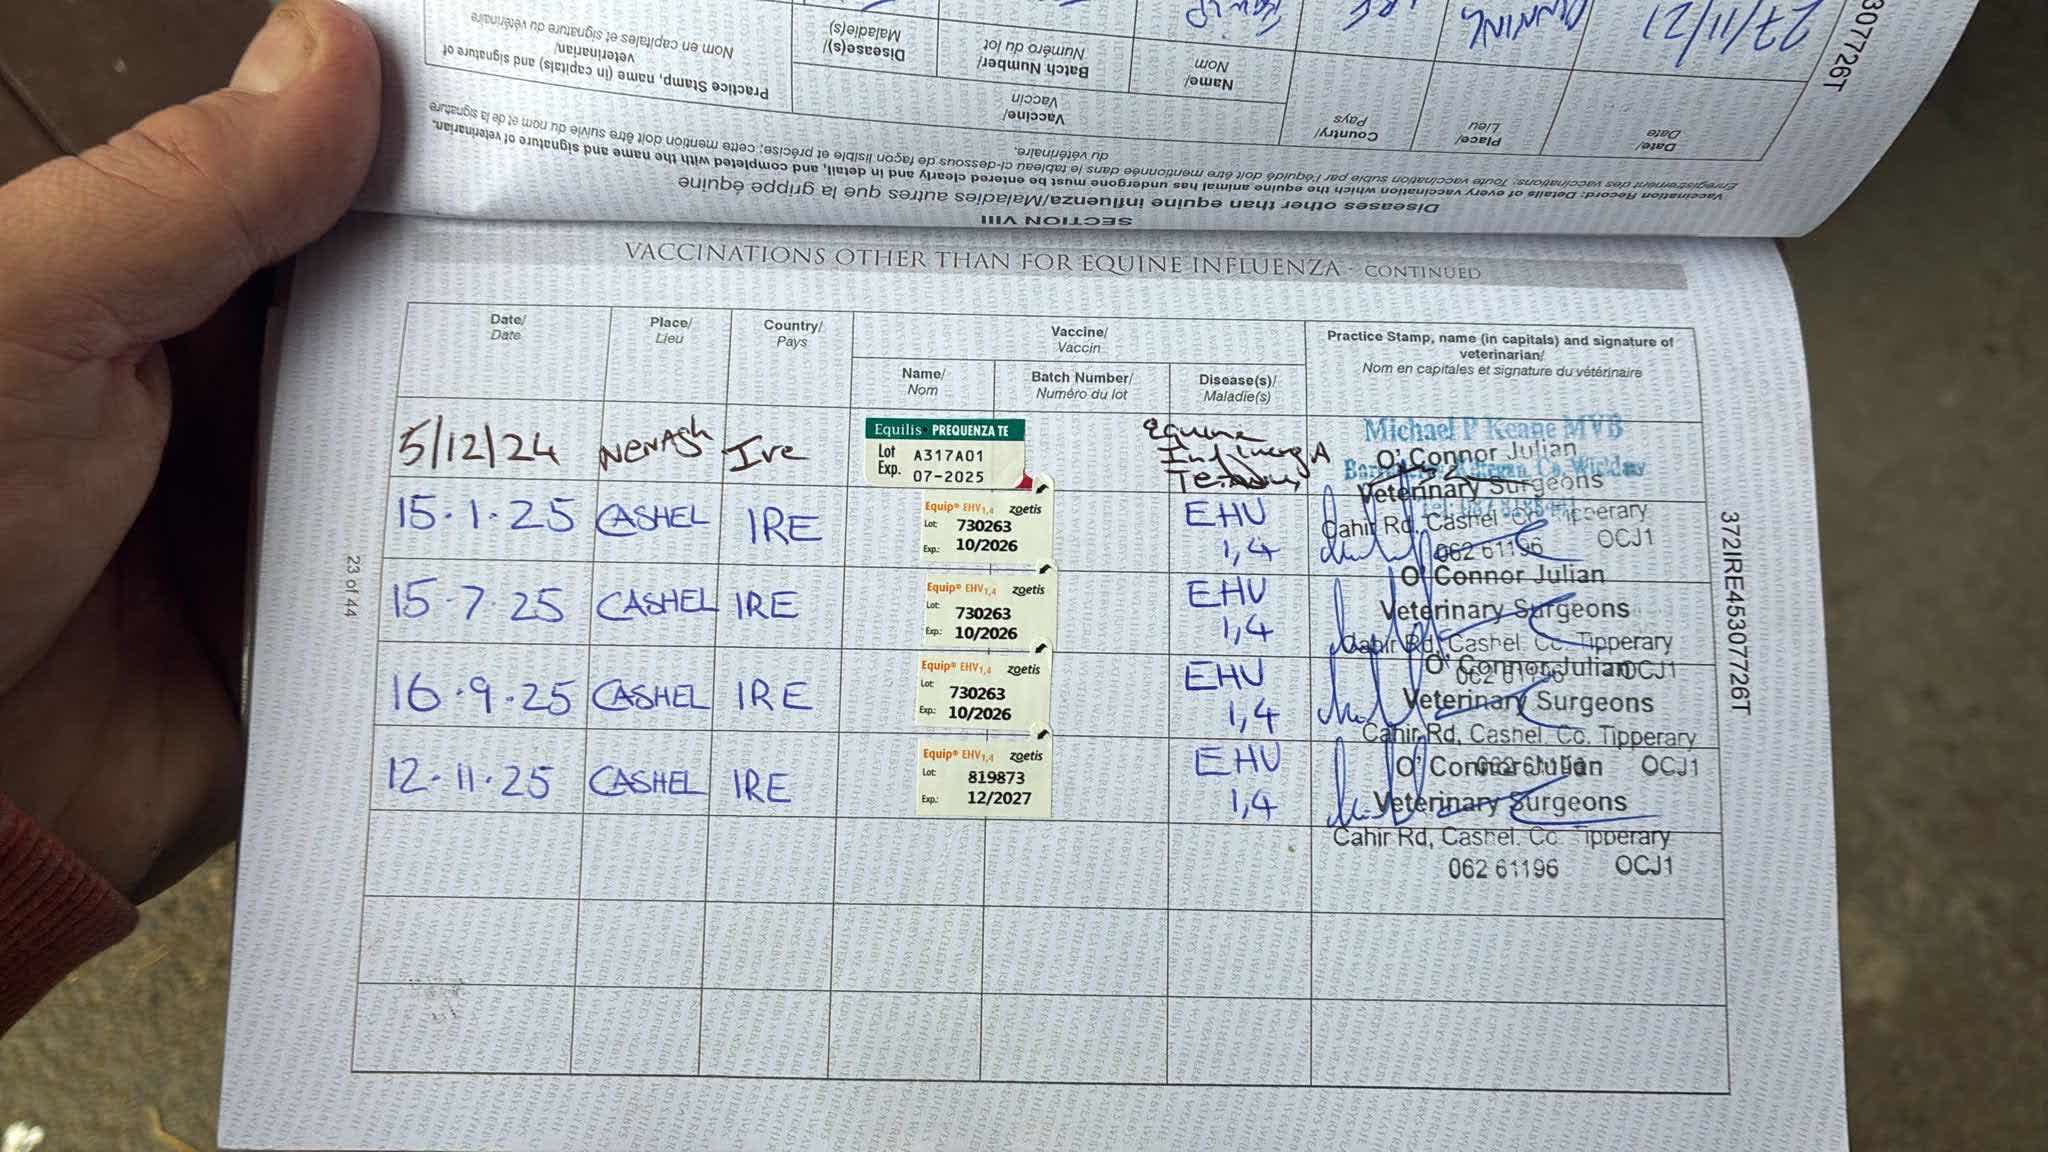 27/11/21
IRE
EQUIP
3077726T
Practice Stamp, name (in capitals) and signature of
veterinarian/
Nom en capitales et signature du vétérinaire
Disease(s)/
Maladie(s)
Batch Number/
Numéro du lot
Name/
Nom
Vaccine/
Vaccin
Country/
Pays
Place/
Lieu
Date/
Date
Vaccination Record: Details of every vaccination which the equine animal has undergone must be entered clearly and in detail, and completed with the name and signature of veterinarian.
Enregistrement des vaccinations: Toute vaccination subie par l'équidé doit être mentionnée dans le tableau ci-dessous de façon lisible et précise; cette mention doit être suivie du nom et de la signature
du vétérinaire.
Diseases other than equine influenza/Maladies autres que la grippe équine
SECTION VIII
VACCINATIONS OTHER THAN FOR EQUINE INFLUENZA - CONTINUED
Date/
Date
Place/
Lieu
Country/
Pays
Vaccine/
Vaccin
Name/
Nom
Batch Number/
Numéro du lot
Disease(s)/
Maladie(s)
Practice Stamp, name (in capitals) and signature of
veterinarian/
Nom en capitales et signature du vétérinaire
5/12/24 NENAGH Ire
Equilis PREQUENZA TE
Lot A317A01
Exp. 07-2025
Equine
Michael P Keane MVB
O' Connor Julian
Veterinary Surgeons
Cahir Rd, Cashel. Co Tipperary
062 61196 OCJ1
15.1.25 CASHEL IRE
Equip® EHV1,4 zoetis
Lot: 730263
Exp.: 10/2026
EHV
1,4
O' Connor Julian
Veterinary Surgeons
Cahir Rd, Cashel. Co. Tipperary
062 61196 OCJ1
15.7.25 CASHEL IRE
Equip® EHV1,4 zoetis
Lot: 730263
Exp.: 10/2026
EHV
1,4
O' Connor Julian
Veterinary Surgeons
Cahir Rd, Cashel. Co. Tipperary
062 61196 OCJ1
16.9.25 CASHEL IRE
Equip® EHV1,4 zoetis
Lot: 730263
Exp.: 10/2026
EHV
1,4
O' Connor Julian
Veterinary Surgeons
Cahir Rd, Cashel. Co Tipperary
062 61196 OCJ1
12.11.25 CASHEL IRE
Equip® EHV1,4 zoetis
Lot: 819873
Exp.: 12/2027
EHV
1,4
23 of 44
372IRE45307726T